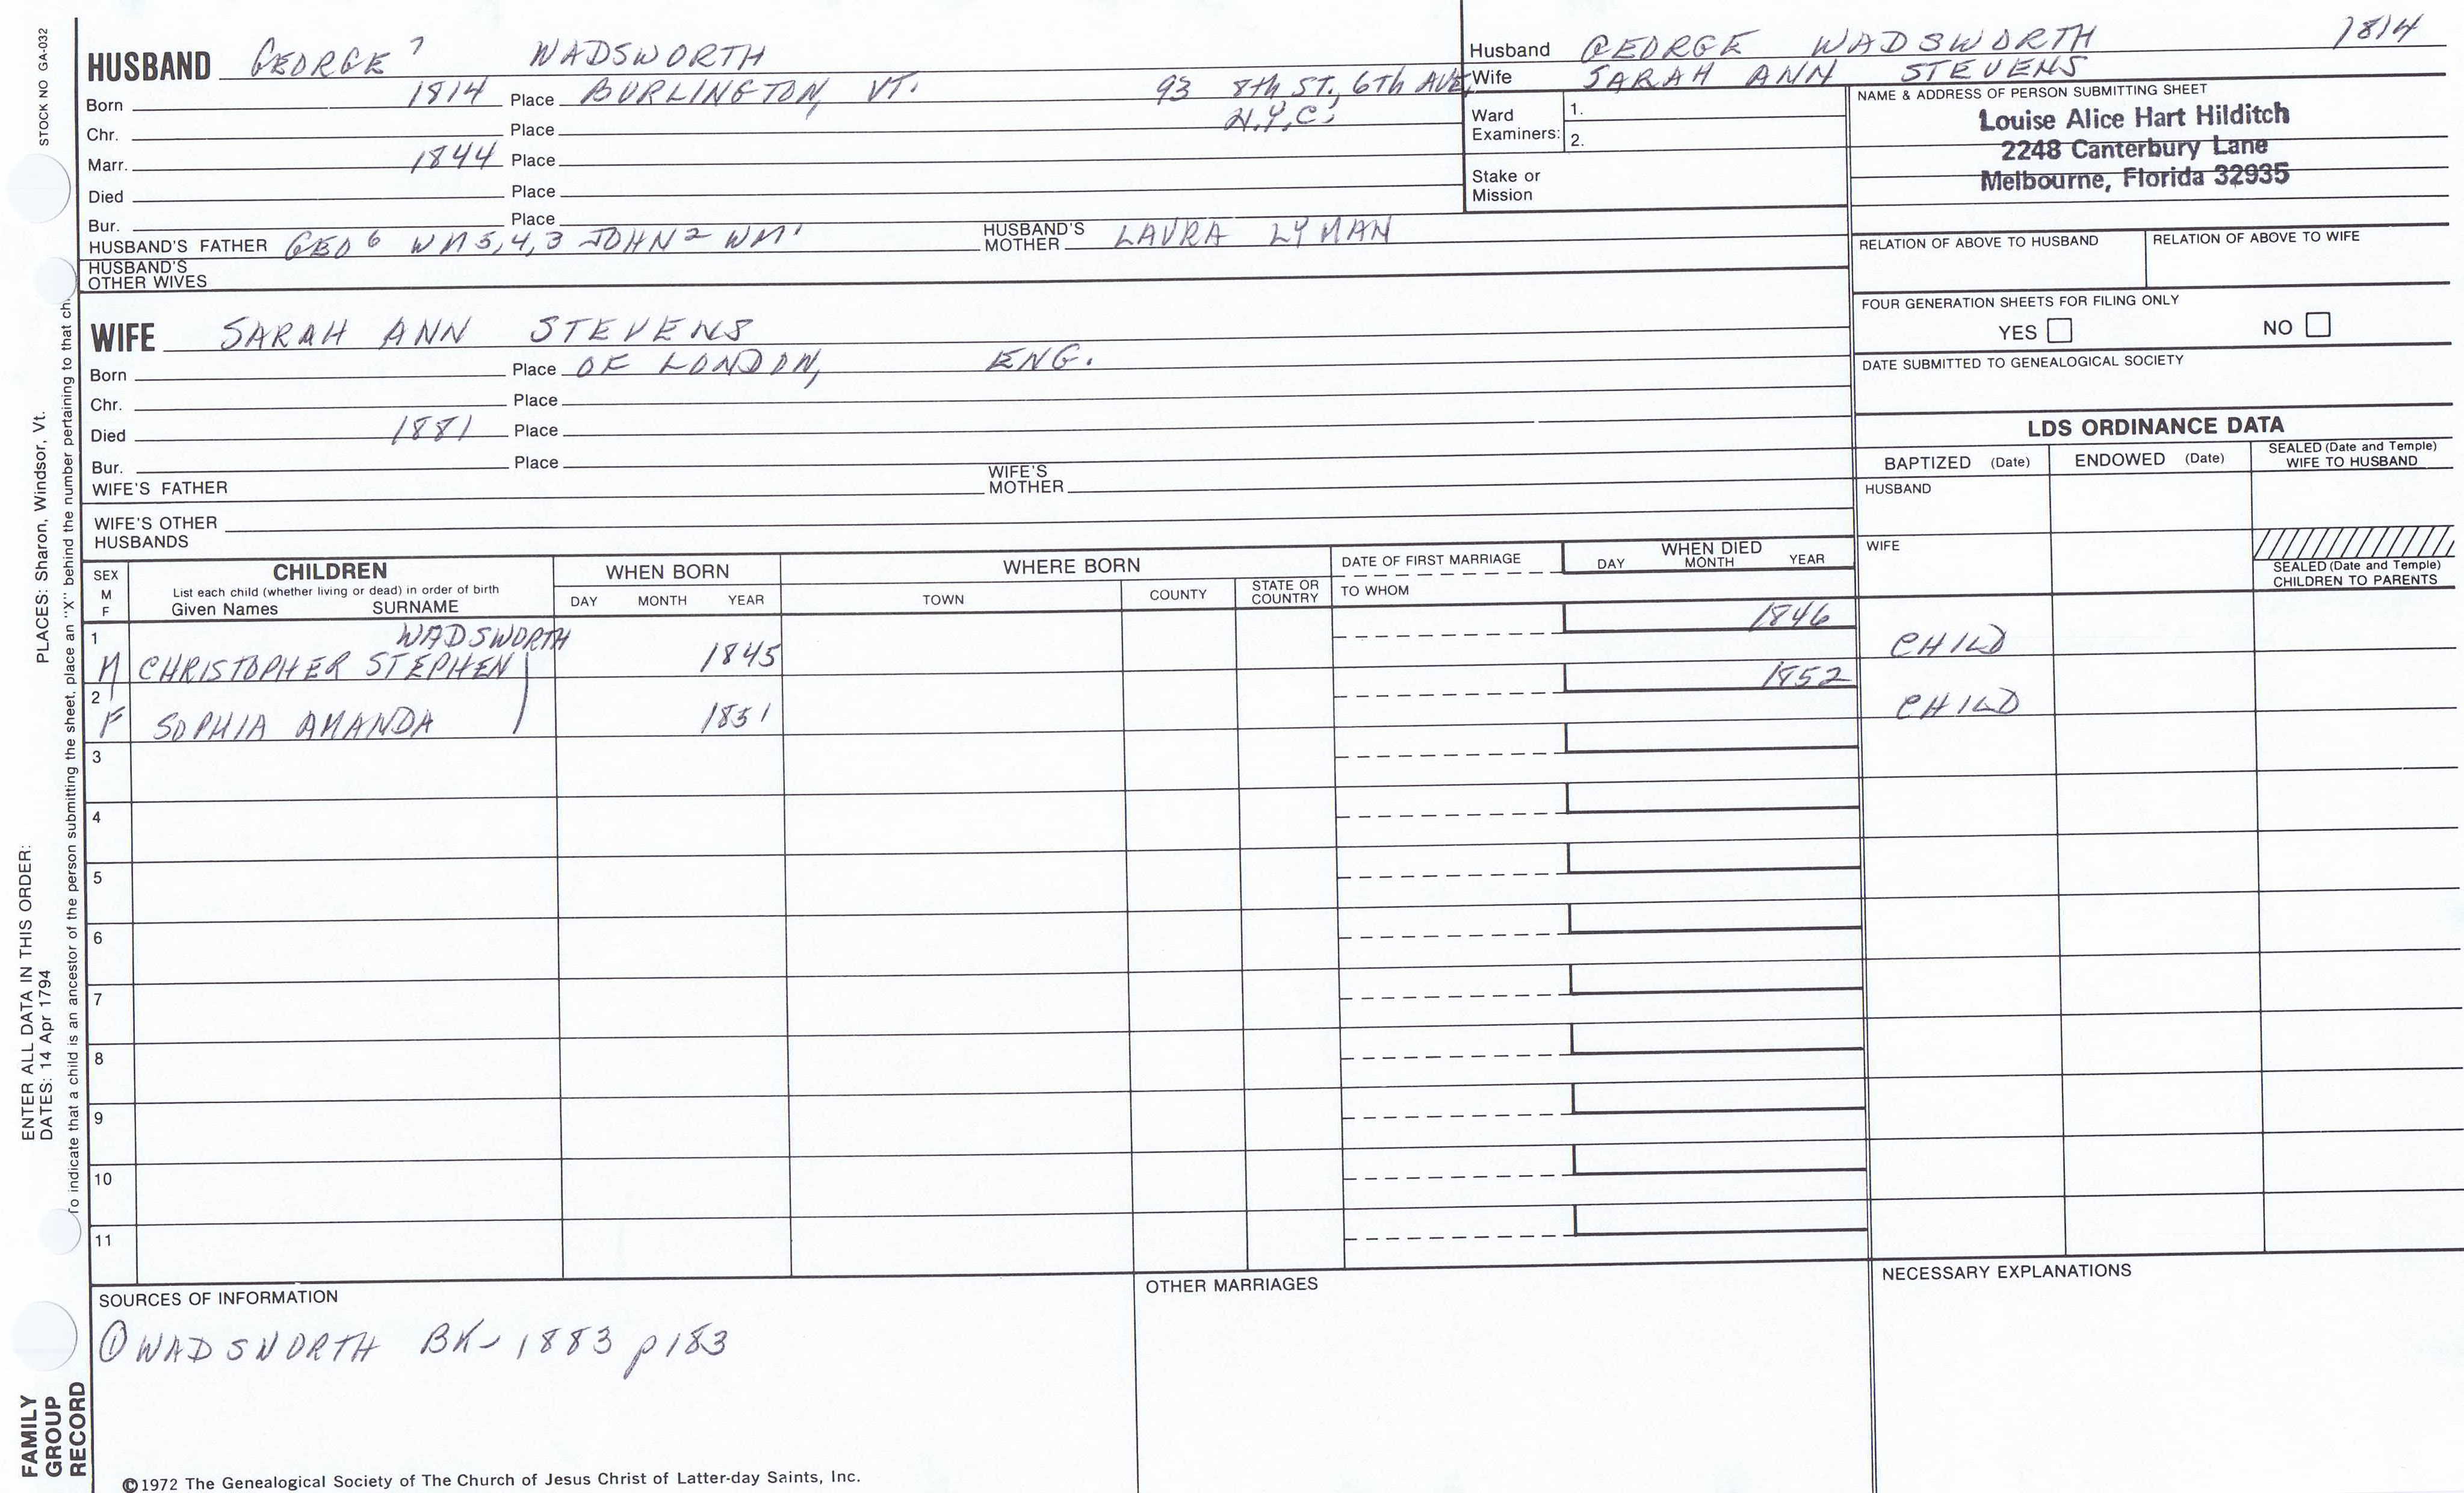 STOCK NO GA-032
HUSBAND GEORGE 7 WADSWORTH
Born 1814 Place BURLINGTON, VT. 93 8th ST., 6TH AVE,
N.Y.C.
Chr. Place
Marr. 1844 Place
Died Place
Bur. Place
HUSBAND'S FATHER GEO 6 WM 5,4,3 JOHN 2 WM 1 HUSBAND'S MOTHER LAURA LYMAN
HUSBAND'S
OTHER WIVES
WIFE SARAH ANN STEVENS
Born Place OF LONDON, ENG.
Chr. Place
Died 1881 Place
Bur. Place
WIFE'S FATHER WIFE'S MOTHER
WIFE'S OTHER
HUSBANDS
Husband GEORGE WADSWORTH 1814
Wife SARAH ANN STEVENS
Ward
Examiners:
1.
2.
Stake or
Mission
NAME & ADDRESS OF PERSON SUBMITTING SHEET
Louise Alice Hart Hilditch
2248 Canterbury Lane
Melbourne, Florida 32935
RELATION OF ABOVE TO HUSBAND RELATION OF ABOVE TO WIFE
FOUR GENERATION SHEETS FOR FILING ONLY
YES NO
DATE SUBMITTED TO GENEALOGICAL SOCIETY
LDS ORDINANCE DATA
BAPTIZED (Date) ENDOWED (Date) SEALED (Date and Temple)
WIFE TO HUSBAND
HUSBAND
WIFE
SEALED (Date and Temple)
CHILDREN TO PARENTS
SEX
M
F
CHILDREN
List each child (whether living or dead) in order of birth
Given Names SURNAME
WHEN BORN
DAY MONTH YEAR
WHERE BORN
TOWN COUNTY STATE OR
COUNTRY
DATE OF FIRST MARRIAGE
TO WHOM
WHEN DIED
DAY MONTH YEAR
1 WADSWORTH 1846
M CHRISTOPHER STEPHEN 1845 CHILD
2 1852
F SOPHIA AMANDA 1851 CHILD
3
4
5
6
7
8
9
10
11
SOURCES OF INFORMATION
① WADSWORTH BK - 1883 p183
OTHER MARRIAGES
NECESSARY EXPLANATIONS
©1972 The Genealogical Society of The Church of Jesus Christ of Latter-day Saints, Inc.
FAMILY
GROUP
RECORD
ENTER ALL DATA IN THIS ORDER:
DATES: 14 Apr 1794 PLACES: Sharon, Windsor, Vt.
To indicate that a child is an ancestor of the person submitting the sheet, place an "X" behind the number pertaining to that ch